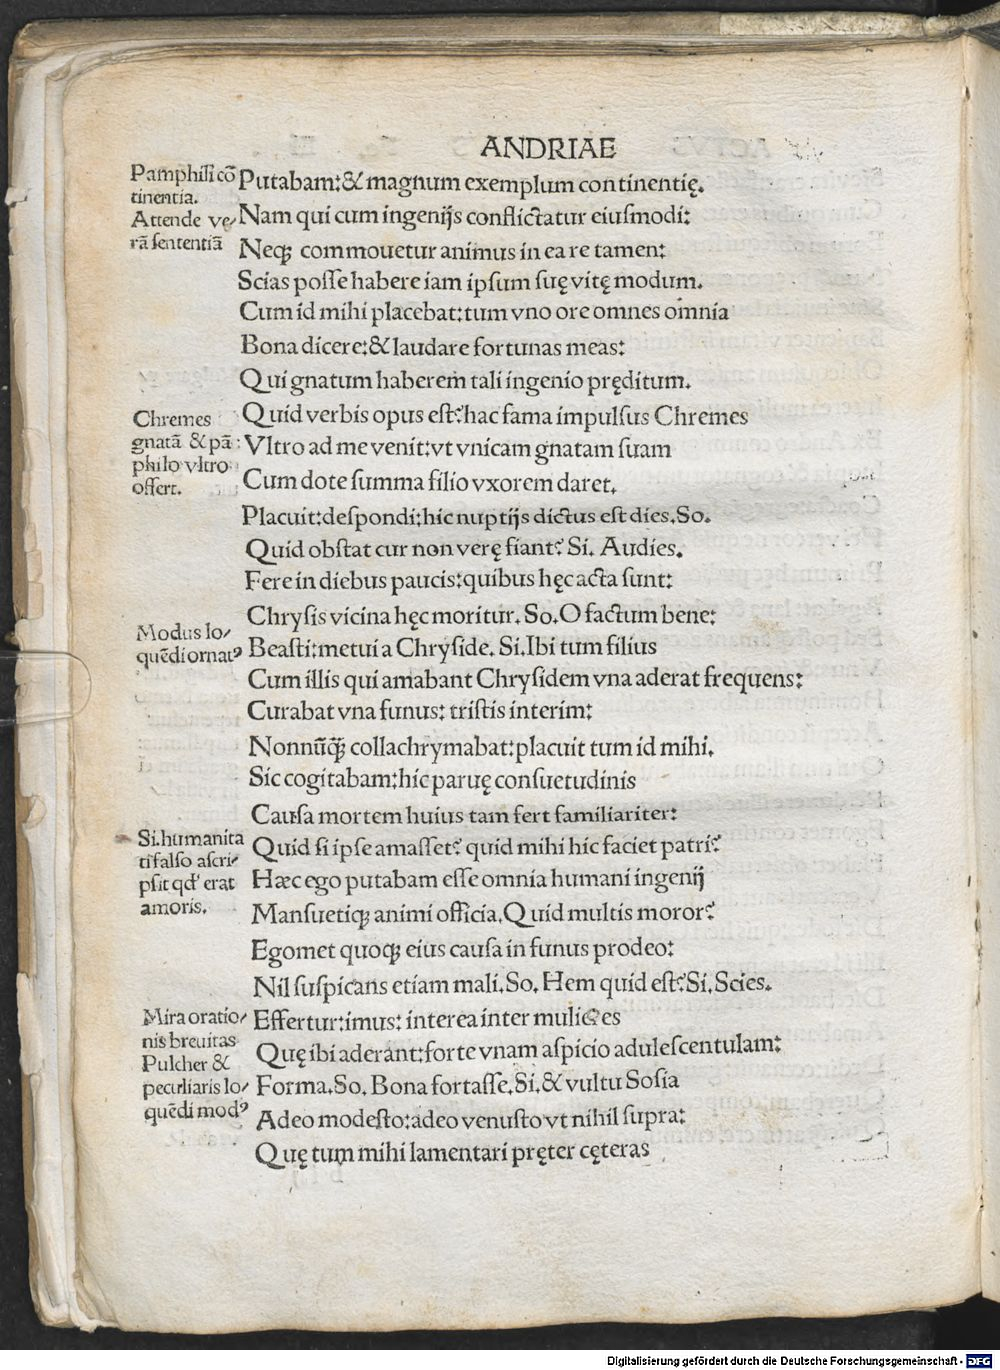 ANDRIAE
Pamphili cō
tinentia.
Attende ve/
rā ſententiā
Putabam:& magnum exemplum continentię.
Nam qui cum ingenijs conflictatur eiuſmodi:
Neqꝫ commouetur animus in ea re tamen:
Scias poſſe habere iam ipſum ſuę vitę modum.
Cum id mihi placebat:tum vno ore omnes omnia
Bona dicere:& laudare fortunas meas:
Qui gnatum haberem tali ingenio pręditum.
Chremes
gnatā & pā
philo vltro
offert.
Quid verbis opus eſt? hac fama impulſus Chremes
Vltro ad me venit:vt vnicam gnatam ſuam
Cum dote ſumma filio vxorem daret.
Placuit:deſpondi:hic nuptijs dictus eſt dies. So.
Quid obſtat cur non verę fiant? Si. Audies.
Fere in diebus paucis:quibus hęc acta ſunt:
Chryſis vicina hęc moritur. So. O factum bene:
Modus lo/
quēdi ornatꝰ
Beaſti:metui a Chryſide. Si. Ibi tum filius
Cum illis qui amabant Chryſidem vna aderat frequens:
Curabat vna funus: triſtis interim:
Nonnūqꝫ collachrymabat:placuit tum id mihi.
Sic cogitabam:hic paruę conſuetudinis
Cauſa mortem huius tam fert familiariter:
Si. humanita
ti falſo aſcri/
pſit qd' erat
amoris.
Quid ſi ipſe amaſſet? quid mihi hic faciet patri?
Hæc ego putabam eſſe omnia humani ingenij
Manſuetiqꝫ animi officia. Quid multis moror?
Egomet quoqꝫ eius cauſa in funus prodeo:
Nil ſuſpicans etiam mali. So. Hem quid eſt? Si. Scies.
Mira oratio/
nis breuitas
Pulcher &
peculiaris lo/
quēdi modꝰ
Effertur:imus: interea inter mulieres
Quę ibi aderant:forte vnam aſpicio aduleſcentulam:
Forma. So. Bona fortaſſe. Si. & vultu Soſia
Adeo modeſto:adeo venuſto vt nihil ſupra:
Quę tum mihi lamentari pręter cęteras
Digitalisierung gefördert durch die Deutsche Forschungsgemeinschaft - DFG